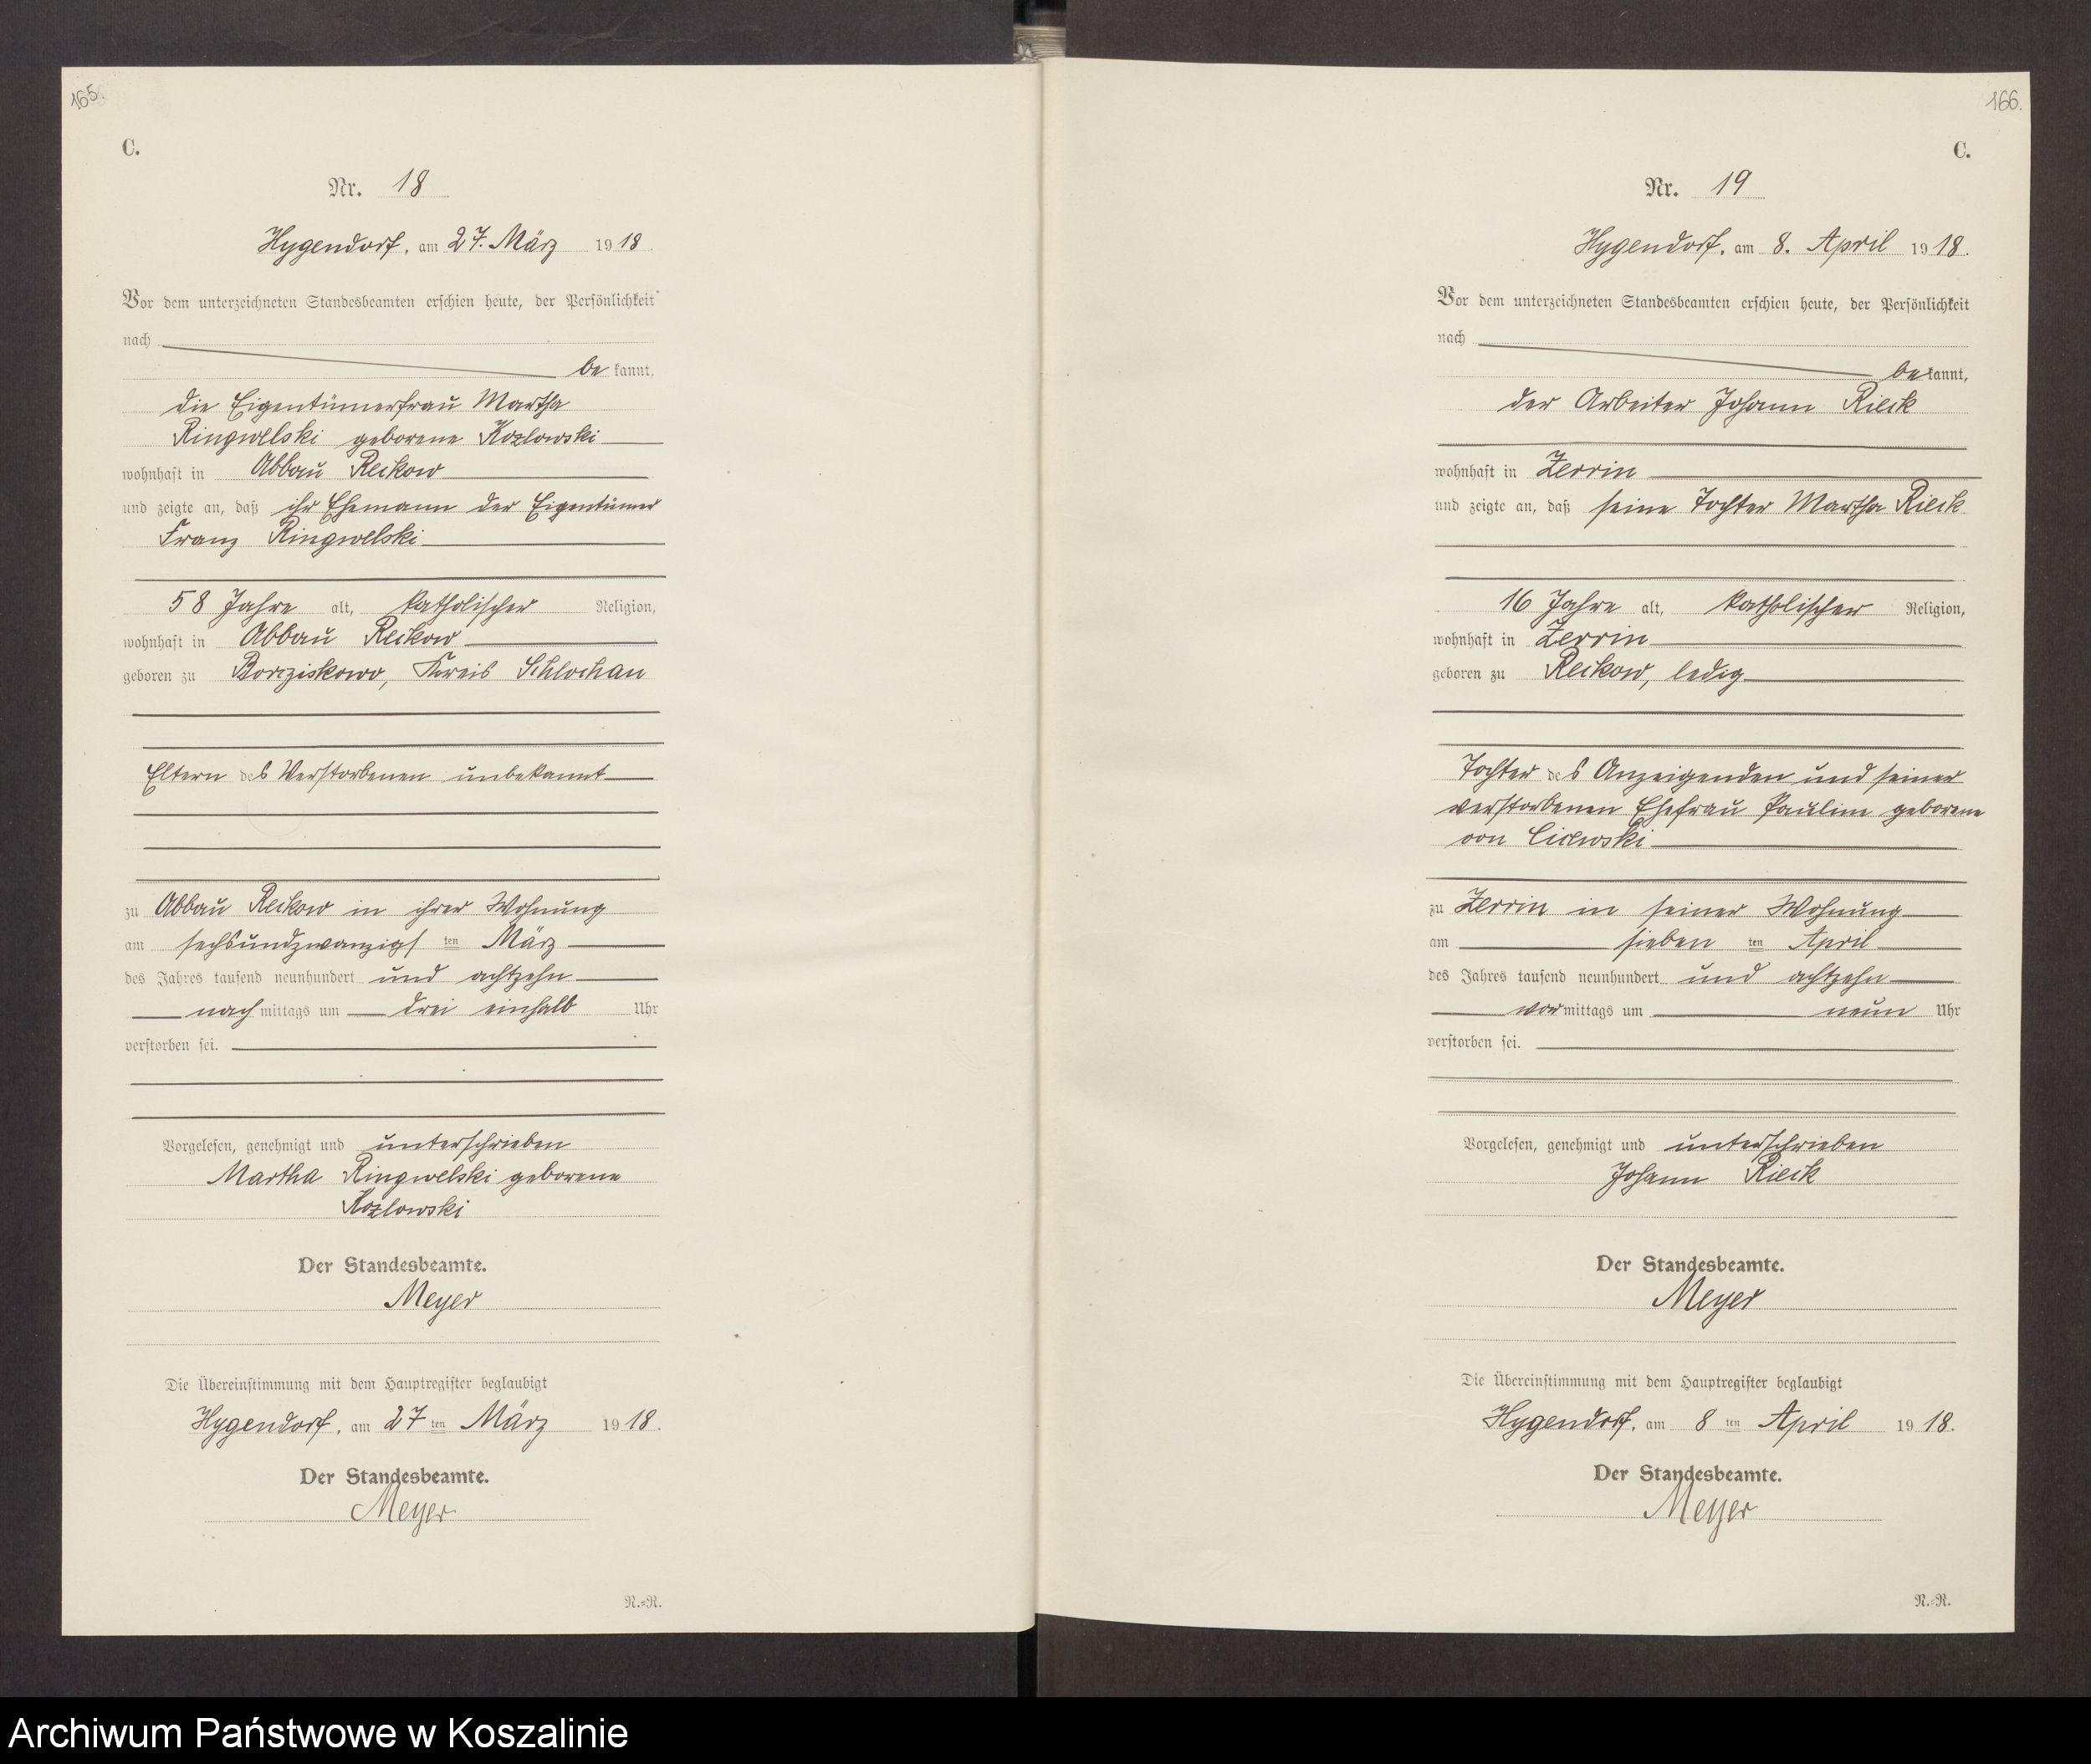 165.
C.
Nr. 18
Hygendorf, am 27. März 1918.
Vor dem unterzeichneten Standesbeamten erschien heute, der Persönlichkeit
nach
be kannt,
die Eigentümerfrau Martha
Ringwelski geborene Kozlowski
wohnhaft in Abbau Reckow
und zeigte an, daß ihr Ehemann der Eigentümer
Franz Ringwelski
58 Jahre alt, katholischer Religion,
wohnhaft in Abbau Reckow
geboren zu Borzziskowo, Kreis Schlochau
Eltern des Verstorbenen unbekannt
zu Abbau Reckow in ihrer Wohnung
am sechsundzwanzigsten März
des Jahres tausend neunhundert und achtzehn
nach mittags um drei einhalb Uhr
verstorben sei.
Vorgelesen, genehmigt und unterschrieben
Martha Ringwelski geborene
Kozlowski
Der Standesbeamte.
Meyer
Die Übereinstimmung mit dem Hauptregister beglaubigt
Hygendorf, am 27 ten März 1918.
Der Standesbeamte.
Meyer
N.=R.
166.
C.
Nr. 19
Hygendorf, am 8. April 1918.
Vor dem unterzeichneten Standesbeamten erschien heute, der Persönlichkeit
nach
be kannt,
der Arbeiter Johann Rieck
wohnhaft in Zerrin
und zeigte an, daß seine Tochter Martha Rieck
16 Jahre alt, katholischer Religion,
wohnhaft in Zerrin
geboren zu Reckow, ledig
Tochter des Anzeigenden und seiner
verstorbenen Ehefrau Pauline geborene
von
zu Zerrin in seiner Wohnung
am sieben ten April
des Jahres tausend neunhundert und achtzehn
vor mittags um neun Uhr
verstorben sei.
Vorgelesen, genehmigt und unterschrieben
Johann Rieck
Der Standesbeamte.
Meyer
Die Übereinstimmung mit dem Hauptregister beglaubigt
Hygendorf, am 8 ten April 1918.
Der Standesbeamte.
Meyer
N.=R.
Archiwum Państwowe w Koszalinie